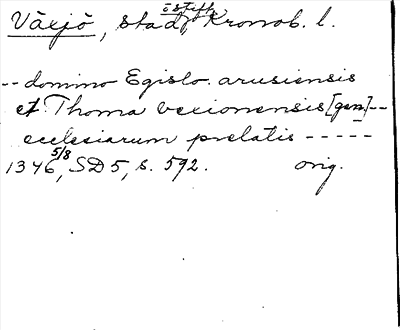 Växjö, stad, o stift Kronob. l.
-- domino Egislo. arusiensis
et Thoma vexionensis [gen] --
ecclesiarum prelatis -----
1346 5/8, SD 5, s. 592. orig.